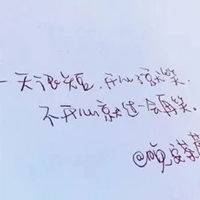 一天很短,开心了就笑,
不开心就过一会再笑。
@晚安